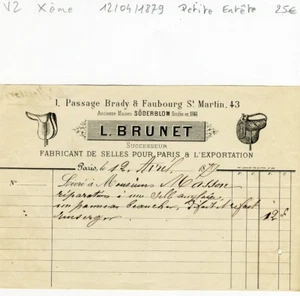 V2 Xème 12/04/1879 Petite Entête 25€
1, Passage Brady & Faubourg St Martin, 43
Ancienne Maison SÖDERBLOM fondée en
L. BRUNET
SUCCESSEUR
FABRICANT DE SELLES POUR PARIS & L'EXPORTATION
Paris, le 12 Avril 1879
No Livré à Monsieur Masson
réparation à une selle anglaise
un panneau
12 f